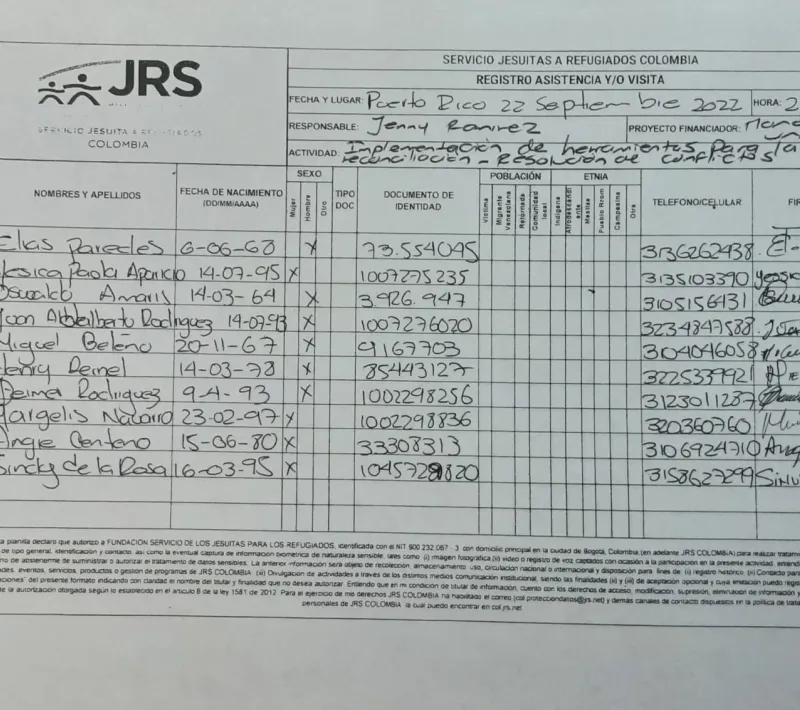 JRS
SERVICIO JESUITA A REFUGIADOS
COLOMBIA
SERVICIO JESUITAS A REFUGIADOS COLOMBIA
REGISTRO ASISTENCIA Y/O VISITA
FECHA Y LUGAR: Puerto Rico 22 Septiembre 2022 HORA: 2
RESPONSABLE: Jenny Ramirez PROYECTO FINANCIADOR:
ACTIVIDAD: Implementación de herramientas para la
reconciliación - Resolución de conflictos
NOMBRES Y APELLIDOS FECHA DE NACIMIENTO (DD/MM/AAAA) SEXO Mujer Hombre Otro TIPO DOC DOCUMENTO DE IDENTIDAD POBLACIÓN Víctima Migrante Venezolana Retornada Comunidad local ETNIA Indígena Afrodescendiente Mestiza Pueblo Rrom Campesina Otra TELEFONO/CELULAR FIR
Elias Paredes 6-06-68 X 73.554045 3136262438
Yesica Paola Aparicio 14-07-95 X 1007275235 3135103390
Oswaldo Amaris 14-03-64 X 3.926.947 3105156431
Juan Abdelberto Rodriguez 14-07-93 X 1007276020 3234847588
Miguel Beleño 20-11-67 X 9167703 304046058
Henry Deinel 14-03-78 X 85443127 3225339921
Deimer Rodriguez 9-4-93 X 1002298256 3123011287
Margelis Navarro 23-02-97 X 1002298836 320360760
Angie Centeno 15-06-80 X 33308313 3106924710
Sindy de la Rosa 16-03-95 X 1045729820 3158627299
a planilla declaro que autorizo a FUNDACIÓN SERVICIO DE LOS JESUITAS PARA LOS REFUGIADOS, identificada con el NIT 900 232 067 - 3 con domicilio principal en la ciudad de Bogotá, Colombia, (en adelante JRS COLOMBIA) para realizar tratam
de tipo general, identificación y contacto, así como la eventual captura de información biométrica de naturaleza sensible, tales como: (i) imagen fotográfica (ii) video o registro de voz captados con ocasión a la participación en la presente actividad, entend
no de abstenerme de suministrar o autorizar el tratamiento de datos sensibles. La anterior información será objeto de recolección, almacenamiento, uso, circulación nacional o internacional y disposición para fines de: (i) registro histórico, (ii) Contacto par
des, eventos, servicios, productos o gestión de programas de JRS COLOMBIA. (iii) Divulgación de actividades a través de los distintos medios comunicación institucional, siendo las finalidades (ii) y (iii) de aceptación opcional y cuya emitación puedo regist
ciones" del presente formato indicando con claridad el nombre del titular y finalidad que no desea autorizar. Entiendo que en mi condición de titular de información, cuento con los derechos de acceso, modificación, supresión, eliminación de información y
de la autorización otorgada según lo establecido en el artículo 8 de la ley 1581 de 2012. Para el ejercicio de mis derechos JRS COLOMBIA ha habilitado el correo (col.protecciondatos@jrs.net) y demás canales de contacto dispuestos en la política de trata
personales de JRS COLOMBIA, la cual puedo encontrar en col.jrs.net